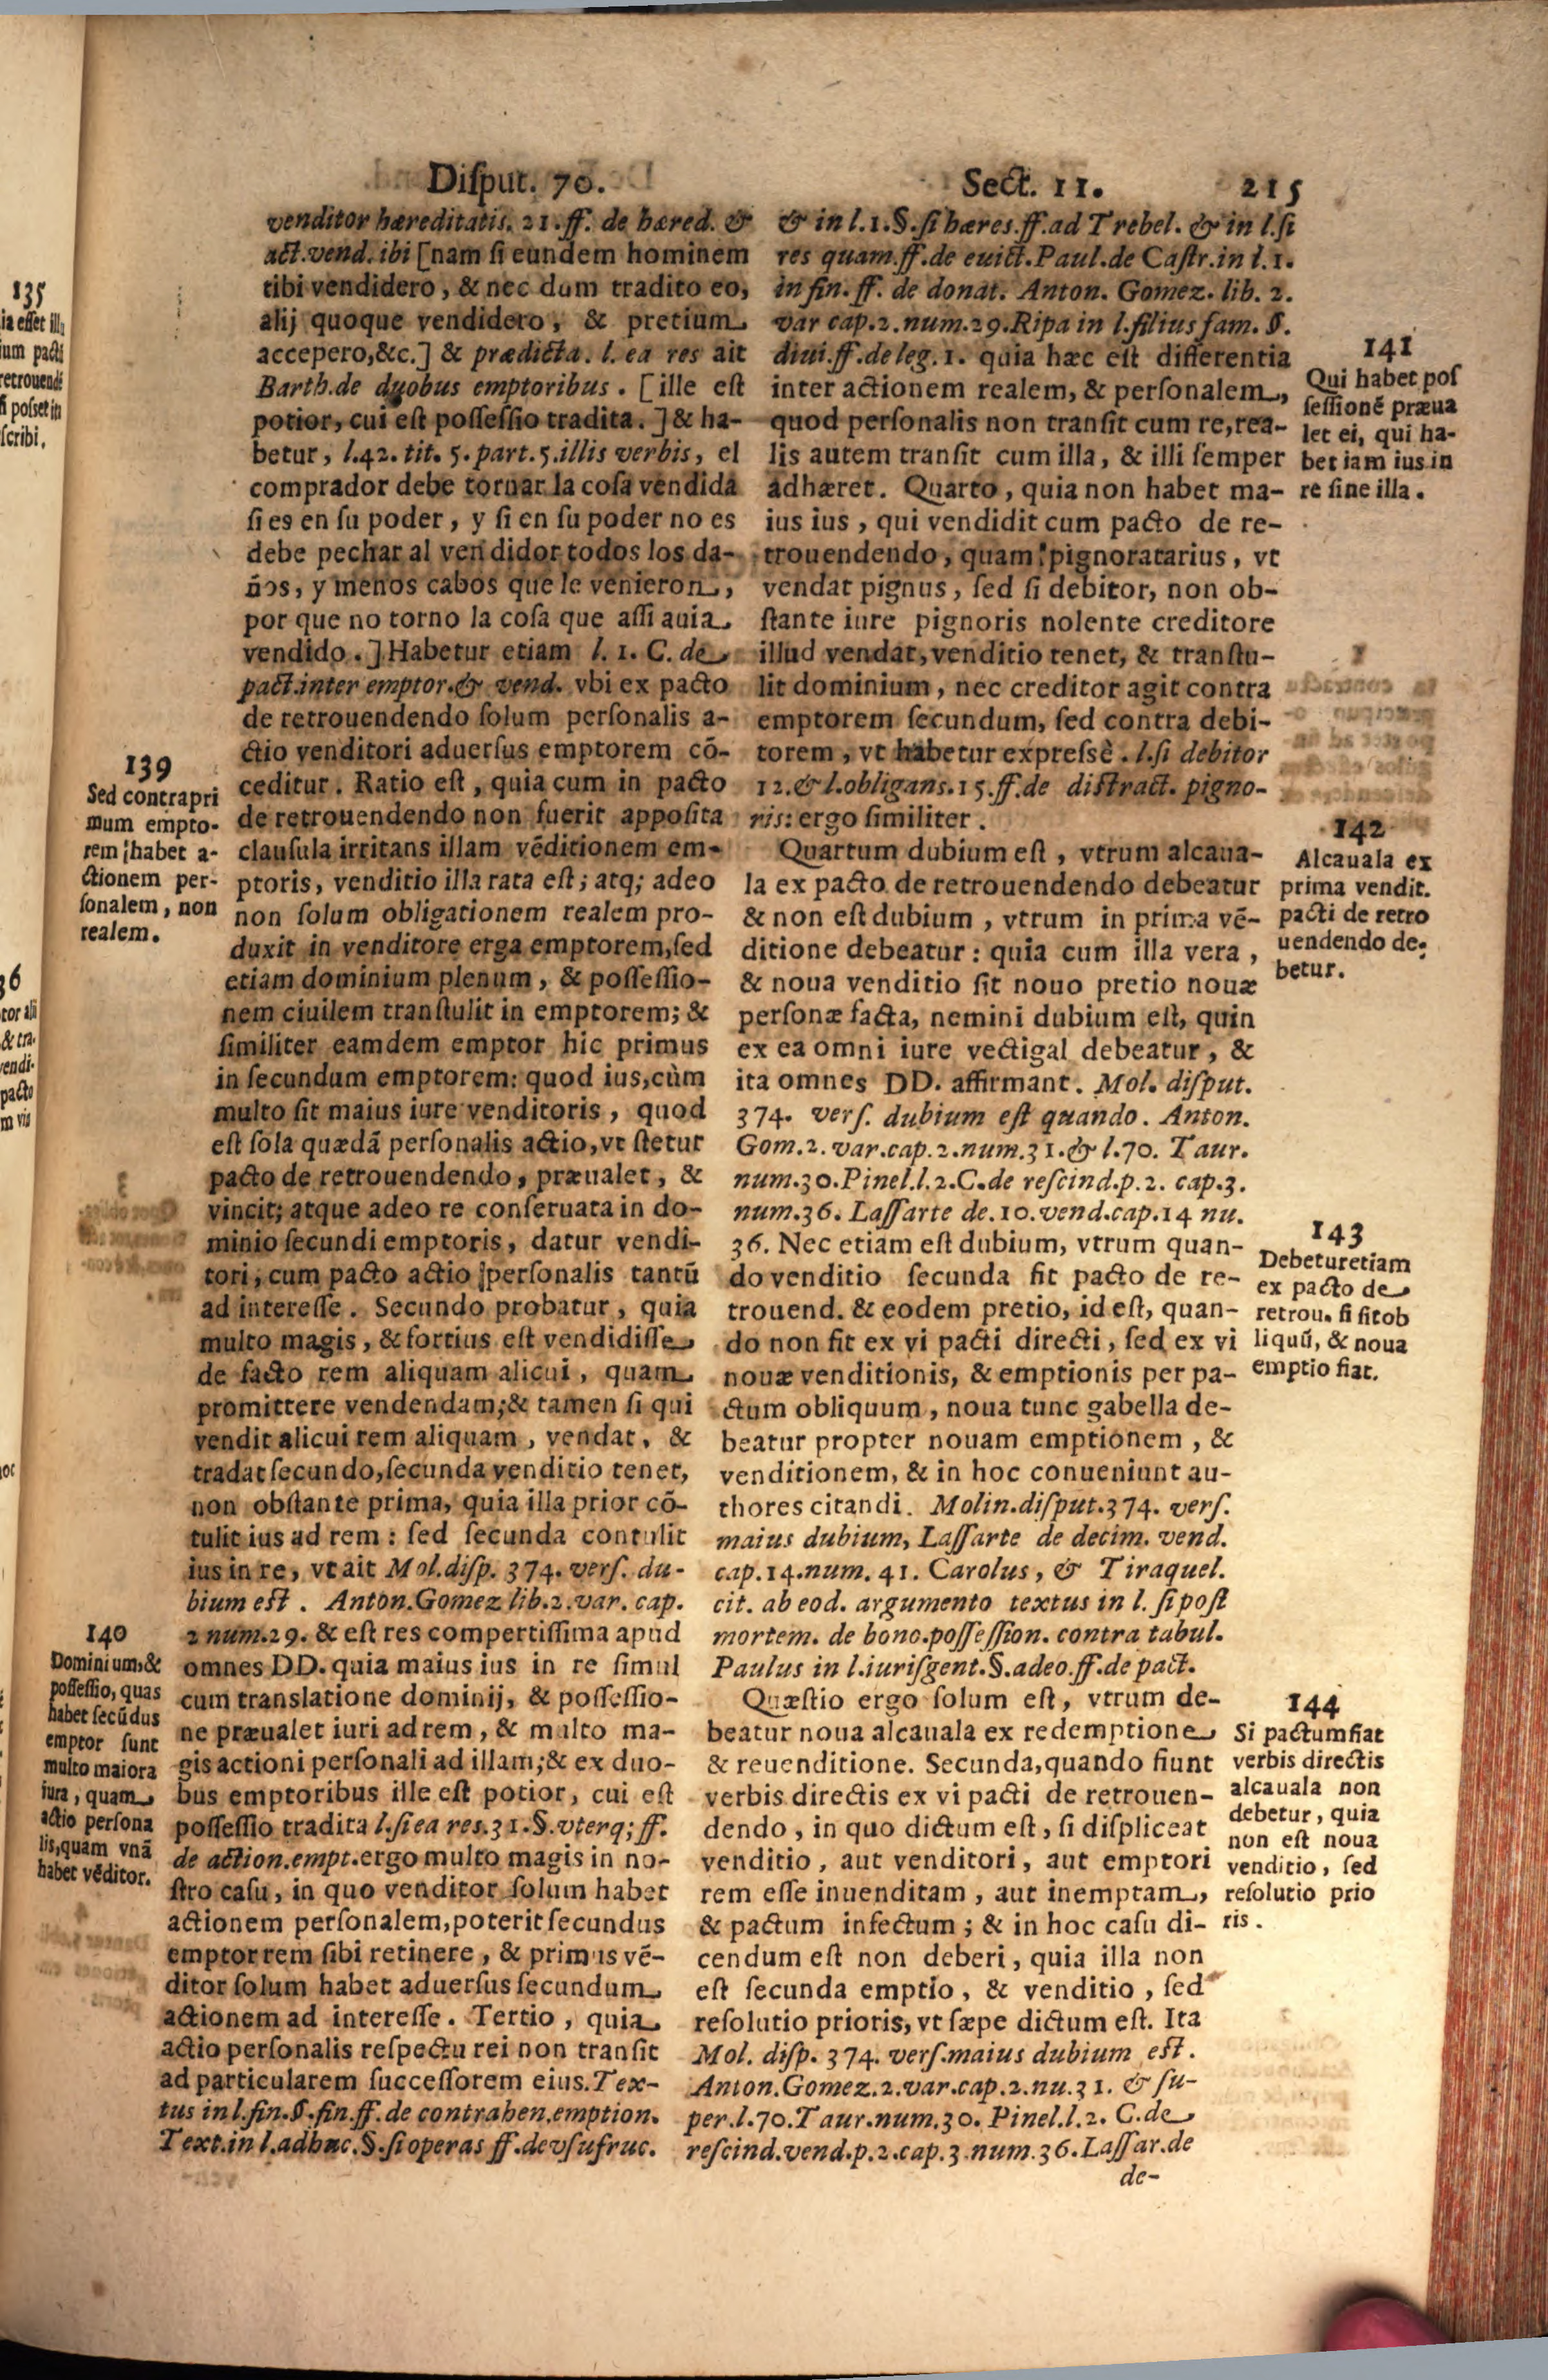 Diſput. 70. Sect. 11. 215
venditor hæreditatis. 21. ff. de hæred. &
act. vend. ibi [nam ſi eundem hominem
tibi vendidero, & nec dum tradito eo,
alij quoque vendidero, & pretium
accepero, &c.] & prædicta. l. ea res ait
Barth. de duobus emptoribus. [ille eſt
potior, cui eſt poſſeſſio tradita.] & ha-
betur, l. 42. tit. 5. part. 5. illis verbis, el
comprador debe tornar la coſa vendida
ſi es en ſu poder, y ſi en ſu poder no es
debe pechar al vendidor todos los da-
ños, y menos cabos que le venieron,
por que no torno la coſa que aſſi auia
vendido.] Habetur etiam l. 1. C. de
pact. inter emptor. & vend. vbi ex pacto
de retrouendendo ſolum perſonalis a-
ctio venditori aduerſus emptorem cō-
ceditur. Ratio eſt, quia cum in pacto
de retrouendendo non fuerit appoſita
clauſula irritans illam vēditionem em-
ptoris, venditio illa rata eſt; atq; adeo
non ſolum obligationem realem pro-
duxit in venditore erga emptorem, ſed
etiam dominium plenum, & poſſeſſio-
nem ciuilem tranſtulit in emptorem; &
ſimiliter eamdem emptor hic primus
in ſecundum emptorem: quod ius, cùm
multo ſit maius iure venditoris, quod
eſt ſola quædā perſonalis actio, vt ſtetur
pacto de retrouendendo, præualet, &
vincit; atque adeo re conſeruata in do-
minio ſecundi emptoris, datur vendi-
tori, cum pacto actio perſonalis tantū
ad intereſſe. Secundo probatur, quia
multo magis, & fortius eſt vendidiſſe
de facto rem aliquam alicui, quam
promittere vendendam; & tamen ſi qui
vendit alicui rem aliquam, vendat, &
tradat ſecundo, ſecunda venditio tenet,
non obſtante prima, quia illa prior cō-
tulit ius ad rem: ſed ſecunda contulit
ius in re, vt ait Mol. diſp. 374. verſ. du-
bium eſt. Anton. Gomez lib. 2. var. cap.
2 num. 29. & eſt res compertiſſima apud
omnes DD. quia maius ius in re ſimul
cum translatione dominij, & poſſeſſio-
ne præualet iuri ad rem, & multo ma-
gis actioni perſonali ad illam; & ex duo-
bus emptoribus ille eſt potior, cui eſt
poſſeſſio tradita l. ſi ea res. 31. §. vterq; ff.
de action. empt. ergo multo magis in no-
ſtro caſu, in quo venditor ſolum habet
actionem perſonalem, poterit ſecundus
emptor rem ſibi retinere, & primus vē-
ditor ſolum habet aduerſus ſecundum
actionem ad intereſſe. Tertio, quia
actio perſonalis reſpectu rei non tranſit
ad particularem ſucceſſorem eius. Tex-
tus in l. fin. §. fin. ff. de contrahen. emption.
Text. in l. adhuc. §. ſi operas ff. de vſufruc.
139
Sed contra pri
mum empto-
rem habet a-
ctionem per-
ſonalem, non
realem.
140
Dominium, &
poſſeſſio, quas
habet ſecūdus
emptor ſunt
multo maiora
iura, quam
actio perſona
lis, quam vnā
habet vēditor.
& in l. 1. §. ſi hæres. ff. ad Trebel. & in l. ſi
res quam. ff. de euict. Paul. de Caſtr. in l. 1.
in fin. ff. de donat. Anton. Gomez. lib. 2.
var cap. 2. num. 29. Ripa in l. filius fam. §.
diui. ff. de leg. 1. quia hæc eſt differentia
inter actionem realem, & perſonalem,
quod perſonalis non tranſit cum re, rea-
lis autem tranſit cum illa, & illi ſemper
adhæret. Quarto, quia non habet ma-
ius ius, qui vendidit cum pacto de re-
trouendendo, quam pignoratarius, vt
vendat pignus, ſed ſi debitor, non ob-
ſtante iure pignoris nolente creditore
illud vendat, venditio tenet, & tranſtu-
lit dominium, nec creditor agit contra
emptorem ſecundum, ſed contra debi-
torem, vt habetur expreſsè. l. ſi debitor
12. & l. obligans. 15. ff. de diſtract. pigno-
ris: ergo ſimiliter.
Quartum dubium eſt, vtrum alcaua-
la ex pacto de retrouendendo debeatur
& non eſt dubium, vtrum in prima vē-
ditione debeatur: quia cum illa vera,
& noua venditio ſit nouo pretio nouæ
perſonæ facta, nemini dubium eſt, quin
ex ea omni iure vectigal debeatur, &
ita omnes DD. affirmant. Mol. diſput.
374. verſ. dubium eſt quando. Anton.
Gom. 2. var. cap. 2. num. 31. & l. 70. Taur.
num. 30. Pinel. l. 2. C. de reſcind. p. 2. cap. 3.
num. 36. Laſſarte de. 10. vend. cap. 14 nu.
36. Nec etiam eſt dubium, vtrum quan-
do venditio ſecunda fit pacto de re-
trouend. & eodem pretio, id eſt, quan-
do non fit ex vi pacti directi, ſed ex vi
nouæ venditionis, & emptionis per pa-
ctum obliquum, noua tunc gabella de-
beatur propter nouam emptionem, &
venditionem, & in hoc conueniunt au-
thores citandi. Molin. diſput. 374. verſ.
maius dubium, Laſſarte de decim. vend.
cap. 14. num. 41. Carolus, & Tiraquel.
cit. ab eod. argumento textus in l. ſi poſt
mortem. de bono. poſſeſſion. contra tabul.
Paulus in l. iuriſgent. §. adeo. ff. de pact.
Quæſtio ergo ſolum eſt, vtrum de-
beatur noua alcauala ex redemptione
& reuenditione. Secunda, quando fiunt
verbis directis ex vi pacti de retrouen-
dendo, in quo dictum eſt, ſi diſpliceat
venditio, aut venditori, aut emptori
rem eſſe inuenditam, aut inemptam,
& pactum infectum; & in hoc caſu di-
cendum eſt non deberi, quia illa non
eſt ſecunda emptio, & venditio, ſed
reſolutio prioris, vt ſæpe dictum eſt. Ita
Mol. diſp. 374. verſ. maius dubium eſt.
Anton. Gomez. 2. var. cap. 2. nu. 31. & ſu-
per. l. 70. Taur. num. 30. Pinel. l. 2. C. de
reſcind. vend. p. 2. cap. 3. num. 36. Laſſar. de
de-
141
Qui habet poſ
ſeſſionē præua
let ei, qui ha-
bet iam ius in
re ſine illa.
142
Alcauala ex
prima vendit.
pacti de retro
uendendo de-
betur.
143
Debetur etiam
ex pacto de
retrou. ſi ſit ob
liquū, & noua
emptio fiat.
144
Si pactum fiat
verbis directis
alcauala non
debetur, quia
non eſt noua
venditio, ſed
reſolutio prio
ris.